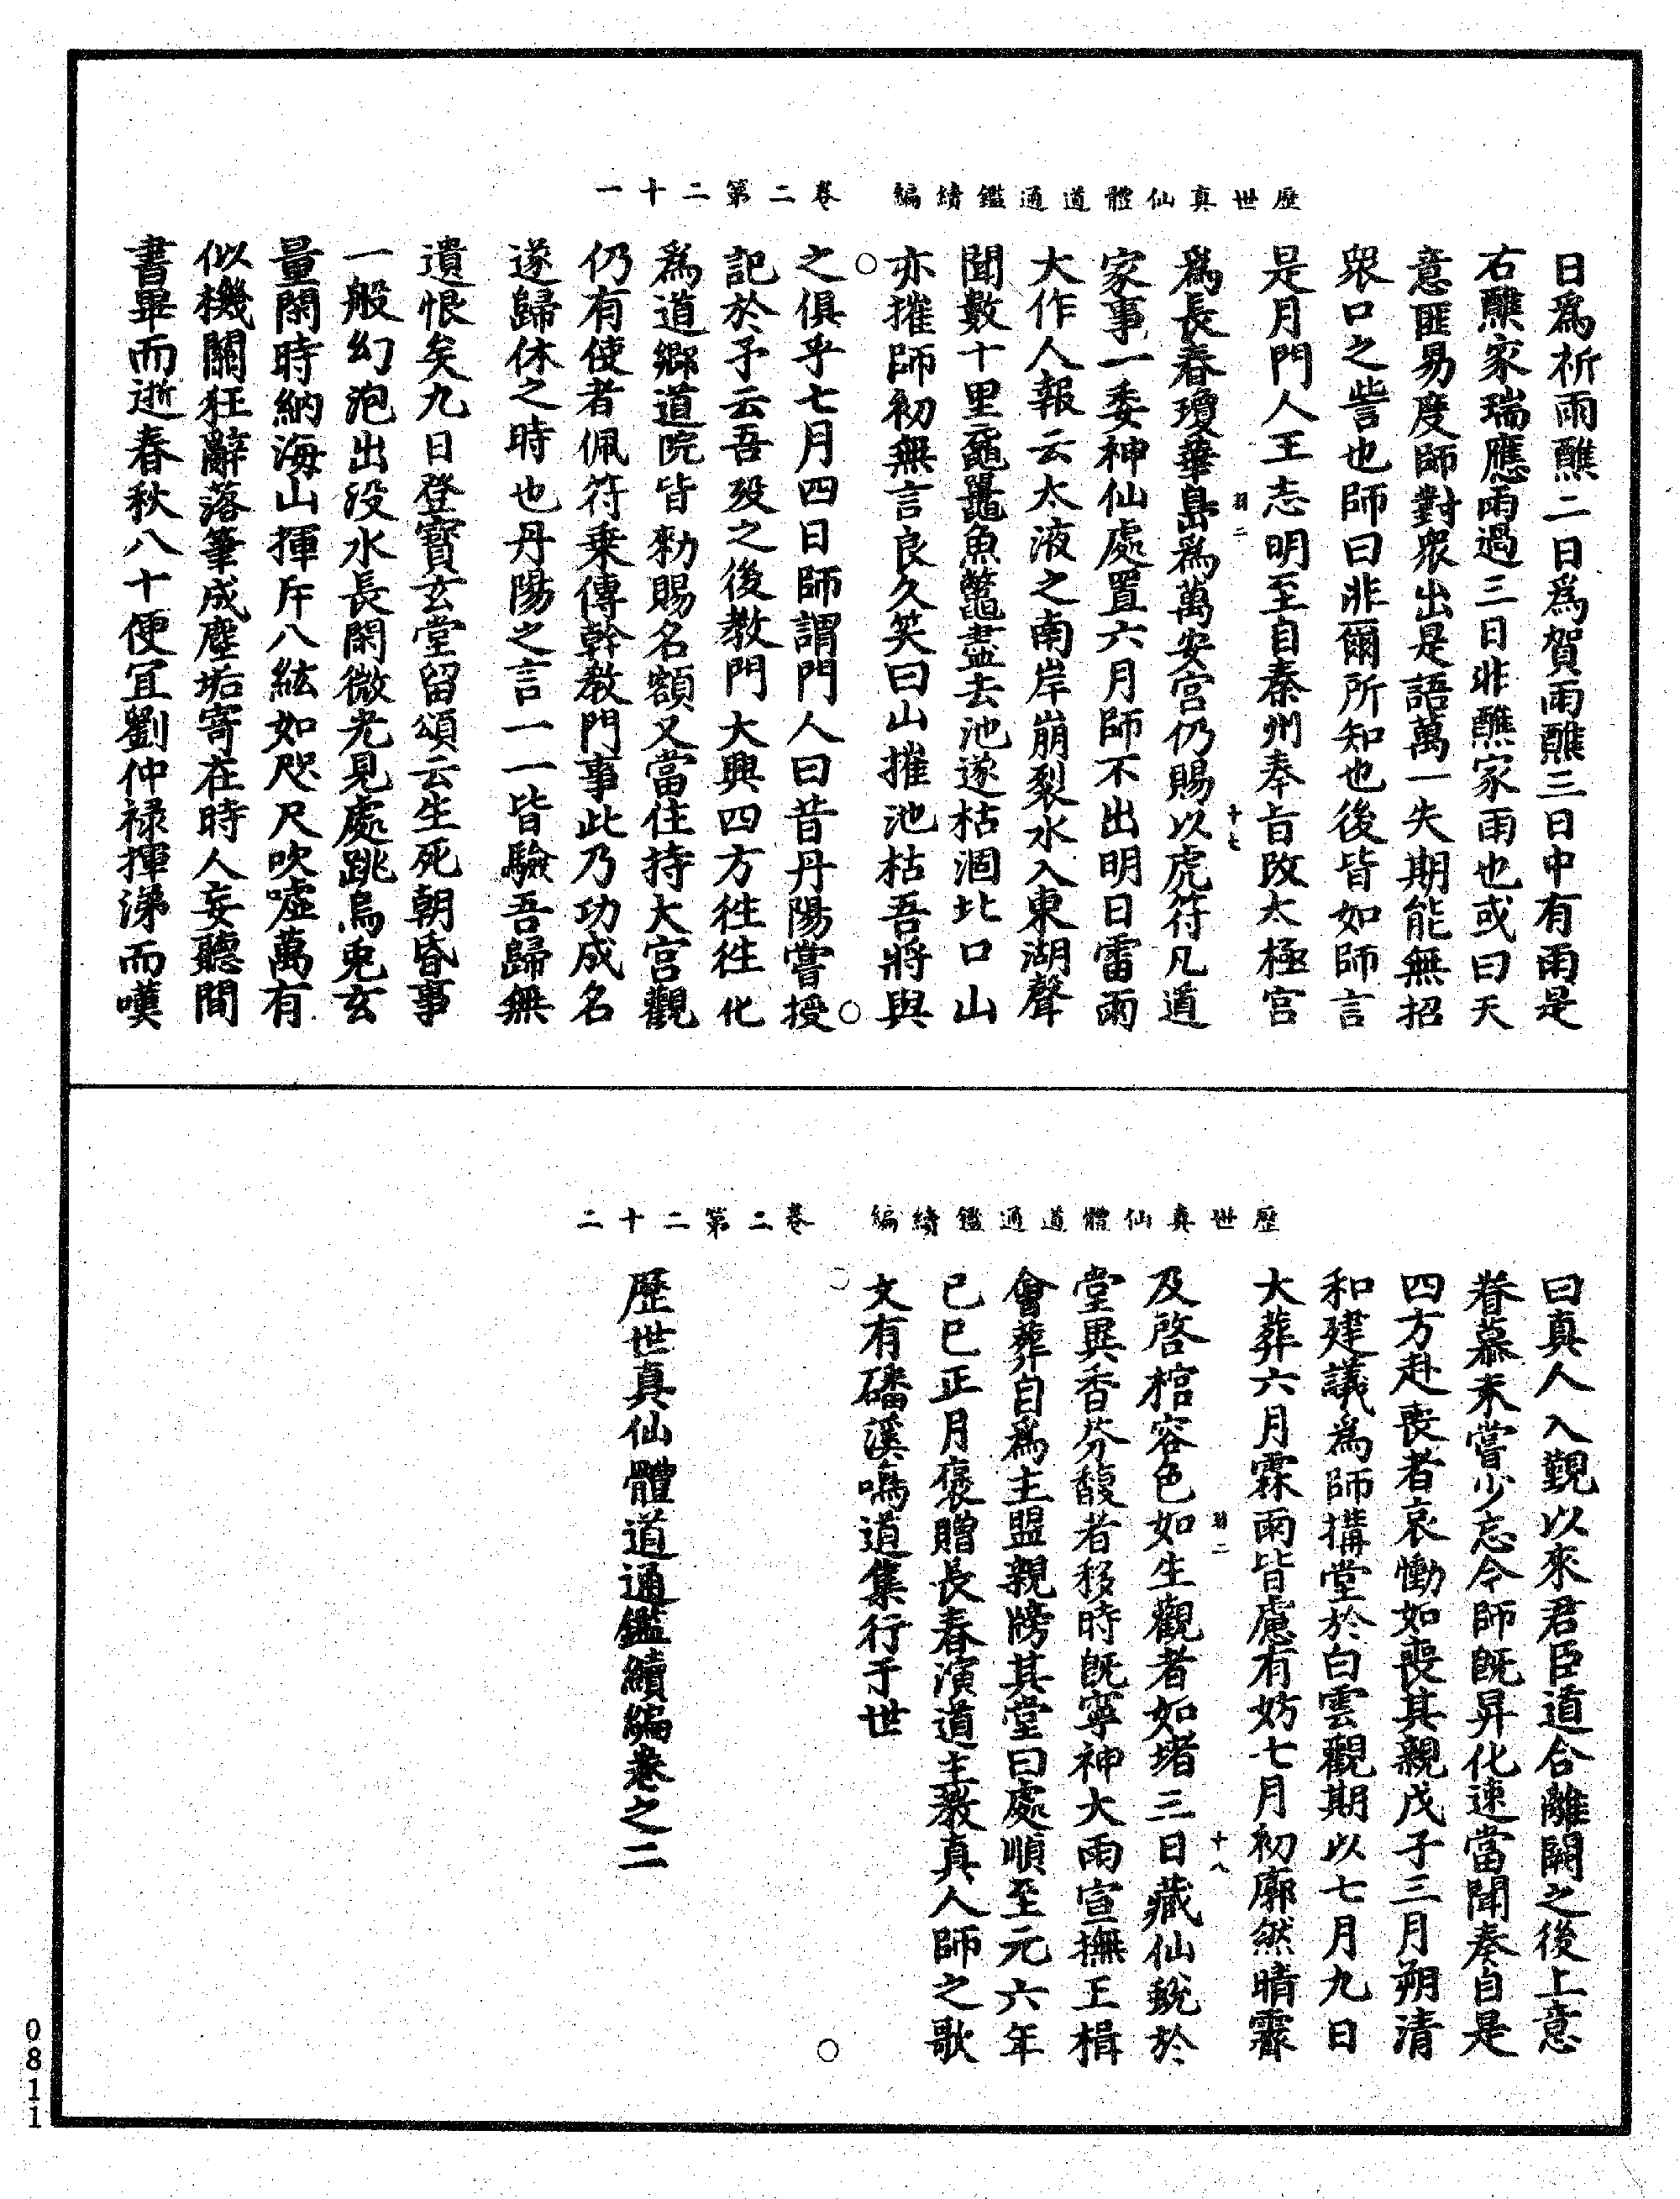 歷世真仙體道通鑑續編 卷二第二十一
日爲祈雨醮二日爲賀雨醮三日中有雨是
右醮家瑞應雨過三日非醮家雨也或曰天
意匪易度師對衆出是語萬一失期能無招
衆口之訾也師曰非爾所知也後皆如師言
是月門人王志明至自秦州奉旨改太極宫
爲長春瓊華島爲萬安宫仍賜以虎符凡道
羽二
十七
家事一委神仙處置六月師不出明日雷雨
大作人報云太液之南岸崩裂水入東湖聲
聞數十里黿鼉魚鼈盡去池遂枯涸北口山
亦摧師初無言良久笑曰山摧池枯吾將與
之俱乎七月四日師謂門人曰昔丹陽嘗授
記於予云吾殁之後教門大興四方徃徃化
爲道鄉道院皆勑賜名額又當住持大宫觀
仍有使者佩符乗傳幹教門事此乃功成名
遂歸休之時也丹陽之言一一皆驗吾歸無
遺恨矣九日登寳玄堂留頌云生死朝昏事
一般幻泡出没水長閑微光見處跳烏兔玄
量開時納海山揮斥八紘如咫尺吹噓萬有
似機關狂辭落筆成塵垢寄在時人妄聽間
書畢而逝春秋八十便宜劉仲禄揮涕而嘆
歷世真仙體道通鑑續編 卷二第二十二
曰真人入覲以來君臣道合離闕之後上意
眷慕未嘗少忘今師既昇化速當聞奏自是
四方赴喪者哀慟如喪其親戊子三月朔清
和建議爲師搆堂於白雲觀期以七月九日
大葬六月霖雨皆慮有妨七月初廓然晴霽
及啓棺容色如生觀者如堵三日藏仙蛻於
羽二
十八
堂異香芬馥者移時既寧神大雨宣撫王楫
會葬自爲主盟親牓其堂曰處順至元六年
己巳正月褒贈長春演道主教真人師之歌
文有磻溪鳴道集行于世
歷世真仙體道通鑑續編卷之二
0811